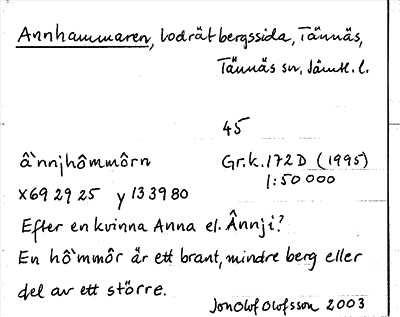 Annhammaren, lodrät bergssida, Tännäs,
Tännäs sn, Jämtl. l.
45
â`nnjhômmôrn Gr.k. 172D (1995)
x69 29 25 y 133980 1:50 000
Efter en kvinna Anna el. Ânnji?
En hô`mmôr är ett brant, mindre berg eller
del av ett större.
JonOlof Olofsson 2003